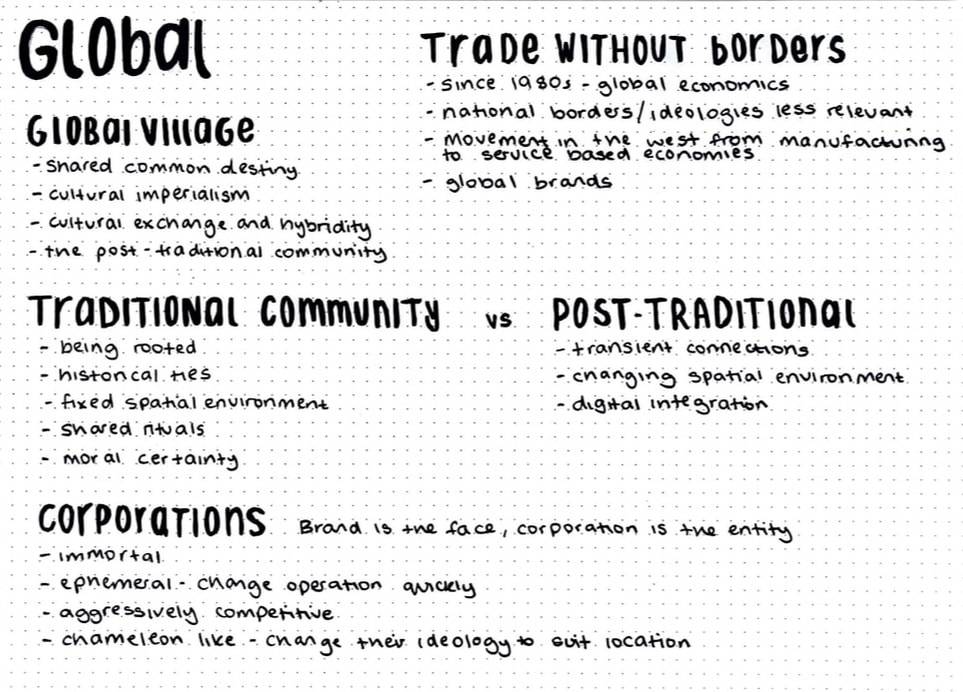 Global
Global Village
- shared common destiny
- cultural imperialism
- cultural exchange and hybridity
- the post-traditional community
Trade WITHOUT borders
- since 1980s - global economics
- national borders/ideologies less relevant
- movement in the west from manufacturing
to service based economies
- global brands
Traditional Community vs Post-Traditional
- being rooted
- historical ties
- fixed spatial environment
- shared rituals
- moral certainty
- transient connections
- changing spatial environment
- digital integration
Corporations Brand is the face, corporation is the entity
- immortal
- ephemeral - change operation quickly
- aggressively competitive
- chameleon like - change their ideology to suit location